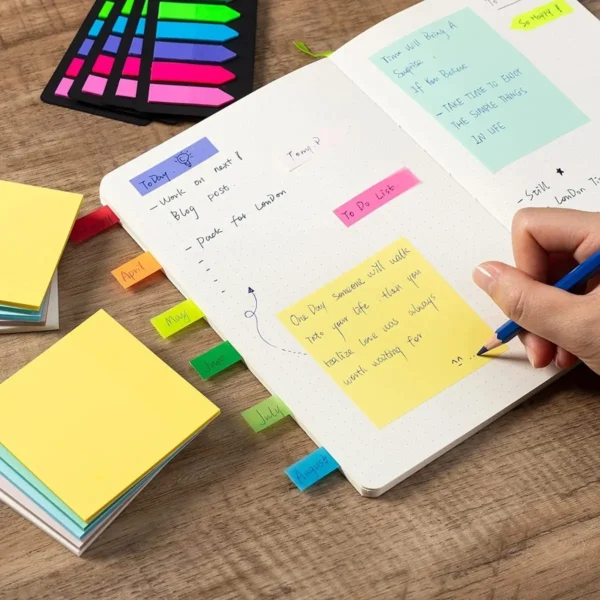 ToDay.
- Work on next!
Blog post.
- Pack for LonDon
-
-
-
To Do List.
One Day someone will walk
into your life then you
realize love was always
worth waiting for
^^ ...
April
May
Jun
July
August
Time Will Being A
.
If You Believe
- TAKE TIME TO ENJOY
THE SIMPLE THINGS
IN LIFE
So Happy!
- Still
LonDon